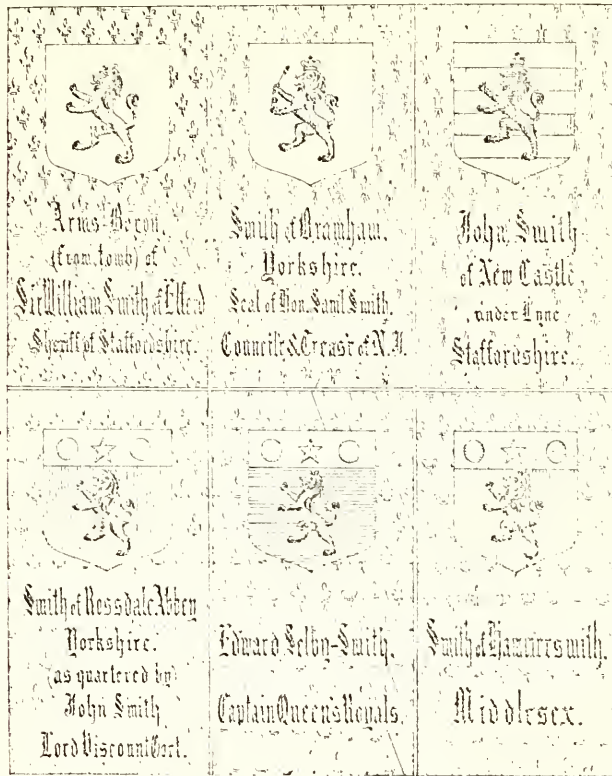 Arms-Becon.
(from tomb) of
Sir William Smith of Elford
Sheriff of Staffordshire.
Smith of Bramham.
Yorkshire.
Seal of Hon. Saml Smith.
Councilr & Treasr of N.Y.
John Smith
of New Castle
under Lyne
Staffordshire.
Smith of Rossdale Abbey
Yorkshire.
(as quartered by)
John Smith
Lord Viscount Gort.
Edward Selby-Smith.
Captain Queen's Royals.
Smith of Hammersmith.
Middlesex.